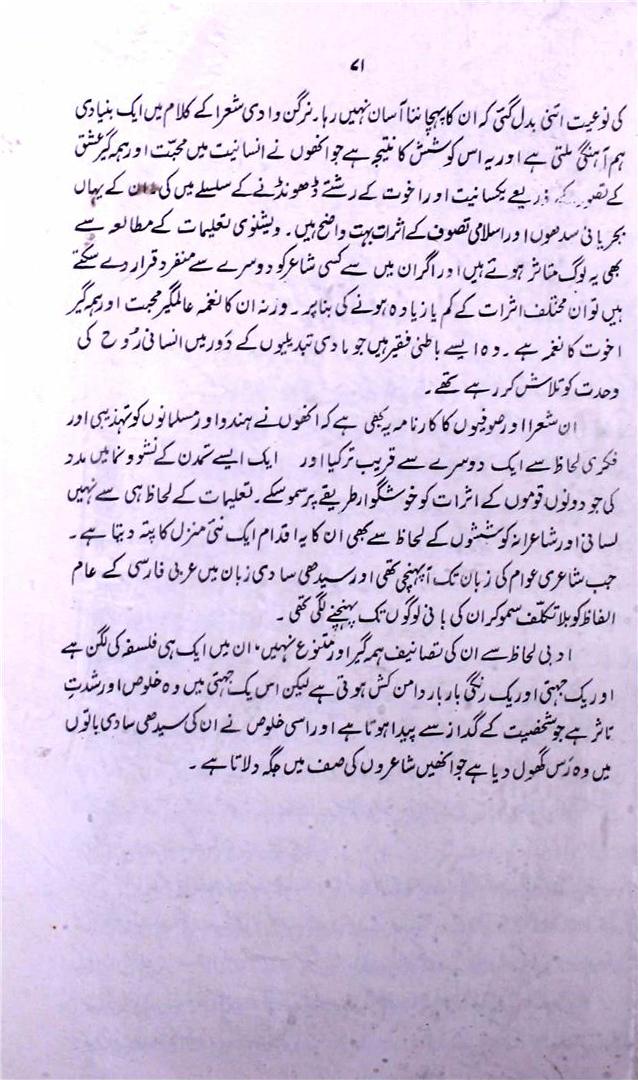 ۷۱
کی نوعیت اتنی بدل گئی کہ ان کا پہچاننا آسان نہیں رہا۔ نرگن وادی شعرا کے کلام میں ایک بنیادی
ہم آہنگی ملتی ہے اور یہ اس کوشش کا نتیجہ ہے جو انھوں نے انسانیت میں محبّت اور ہمہ گیر عشق
کے تصور کے ذریعے یکسانیت اور اخوت کے رشتے ڈھونڈنے کے سلسلے میں کی ان کے یہاں
بجریانی سدھوں اور اسلامی تصوف کے اثرات بہت واضح ہیں۔ ویشنوی تعلیمات کے مطالعہ سے
بھی یہ لوگ متاثر ہوتے ہیں اور اگر ان میں سے کسی شاعر کو دوسرے سے منفرد قرار دے سکتے
ہیں تو ان مختلف اثرات کے کم یا زیادہ ہونے کی بنا پر۔ ورنہ ان کا نغمہ عالمگیر محبت اور ہمہ گیر
اخوت کا نغمہ ہے۔ وہ ایسے باطنی فقیر ہیں جو مادی تبدیلیوں کے دَور میں انسانی رُوح کی
وحدت کو تلاش کر رہے تھے۔
ان شعرا اور صوفیوں کا کارنامہ یہ بھی ہے کہ انھوں نے ہندو اور مسلمانوں کو تہذیبی اور
فکری لحاظ سے ایک دوسرے سے قریب تر کیا اور ایک ایسے تمدن کے نشوونما میں مدد
کی جو دونوں قوموں کے اثرات کو خوشگوار طریقے پر سمو سکے۔ تعلیمات کے لحاظ ہی سے نہیں
لسانی اور شاعرانہ کوششوں کے لحاظ سے بھی ان کا یہ اقدام ایک نئی منزل کا پتہ دیتا ہے۔
جب شاعری عوام کی زبان تک آپہنچی تھی اور سیدھی سادی زبان میں عربی فارسی کے عام
الفاظ کو بلا تکلّف سمو کر ان کی بانی لوگوں تک پہنچنے لگی تھی۔
ادبی لحاظ سے ان کی تصانیف ہمہ گیر اور متنوع نہیں، ان میں ایک ہی فلسفہ کی لگن ہے
اور یک جہتی اور یک رنگی بار بار دامن کش ہوتی ہے لیکن اس یک جہتی میں وہ خلوص اور شدتِ
تاثر ہے جو شخصیت کے گداز سے پیدا ہوتا ہے اور اسی خلوص نے ان کی سیدھی سادی باتوں
میں وہ رَس گھول دیا ہے جو انھیں شاعروں کی صف میں جگہ دلاتا ہے۔